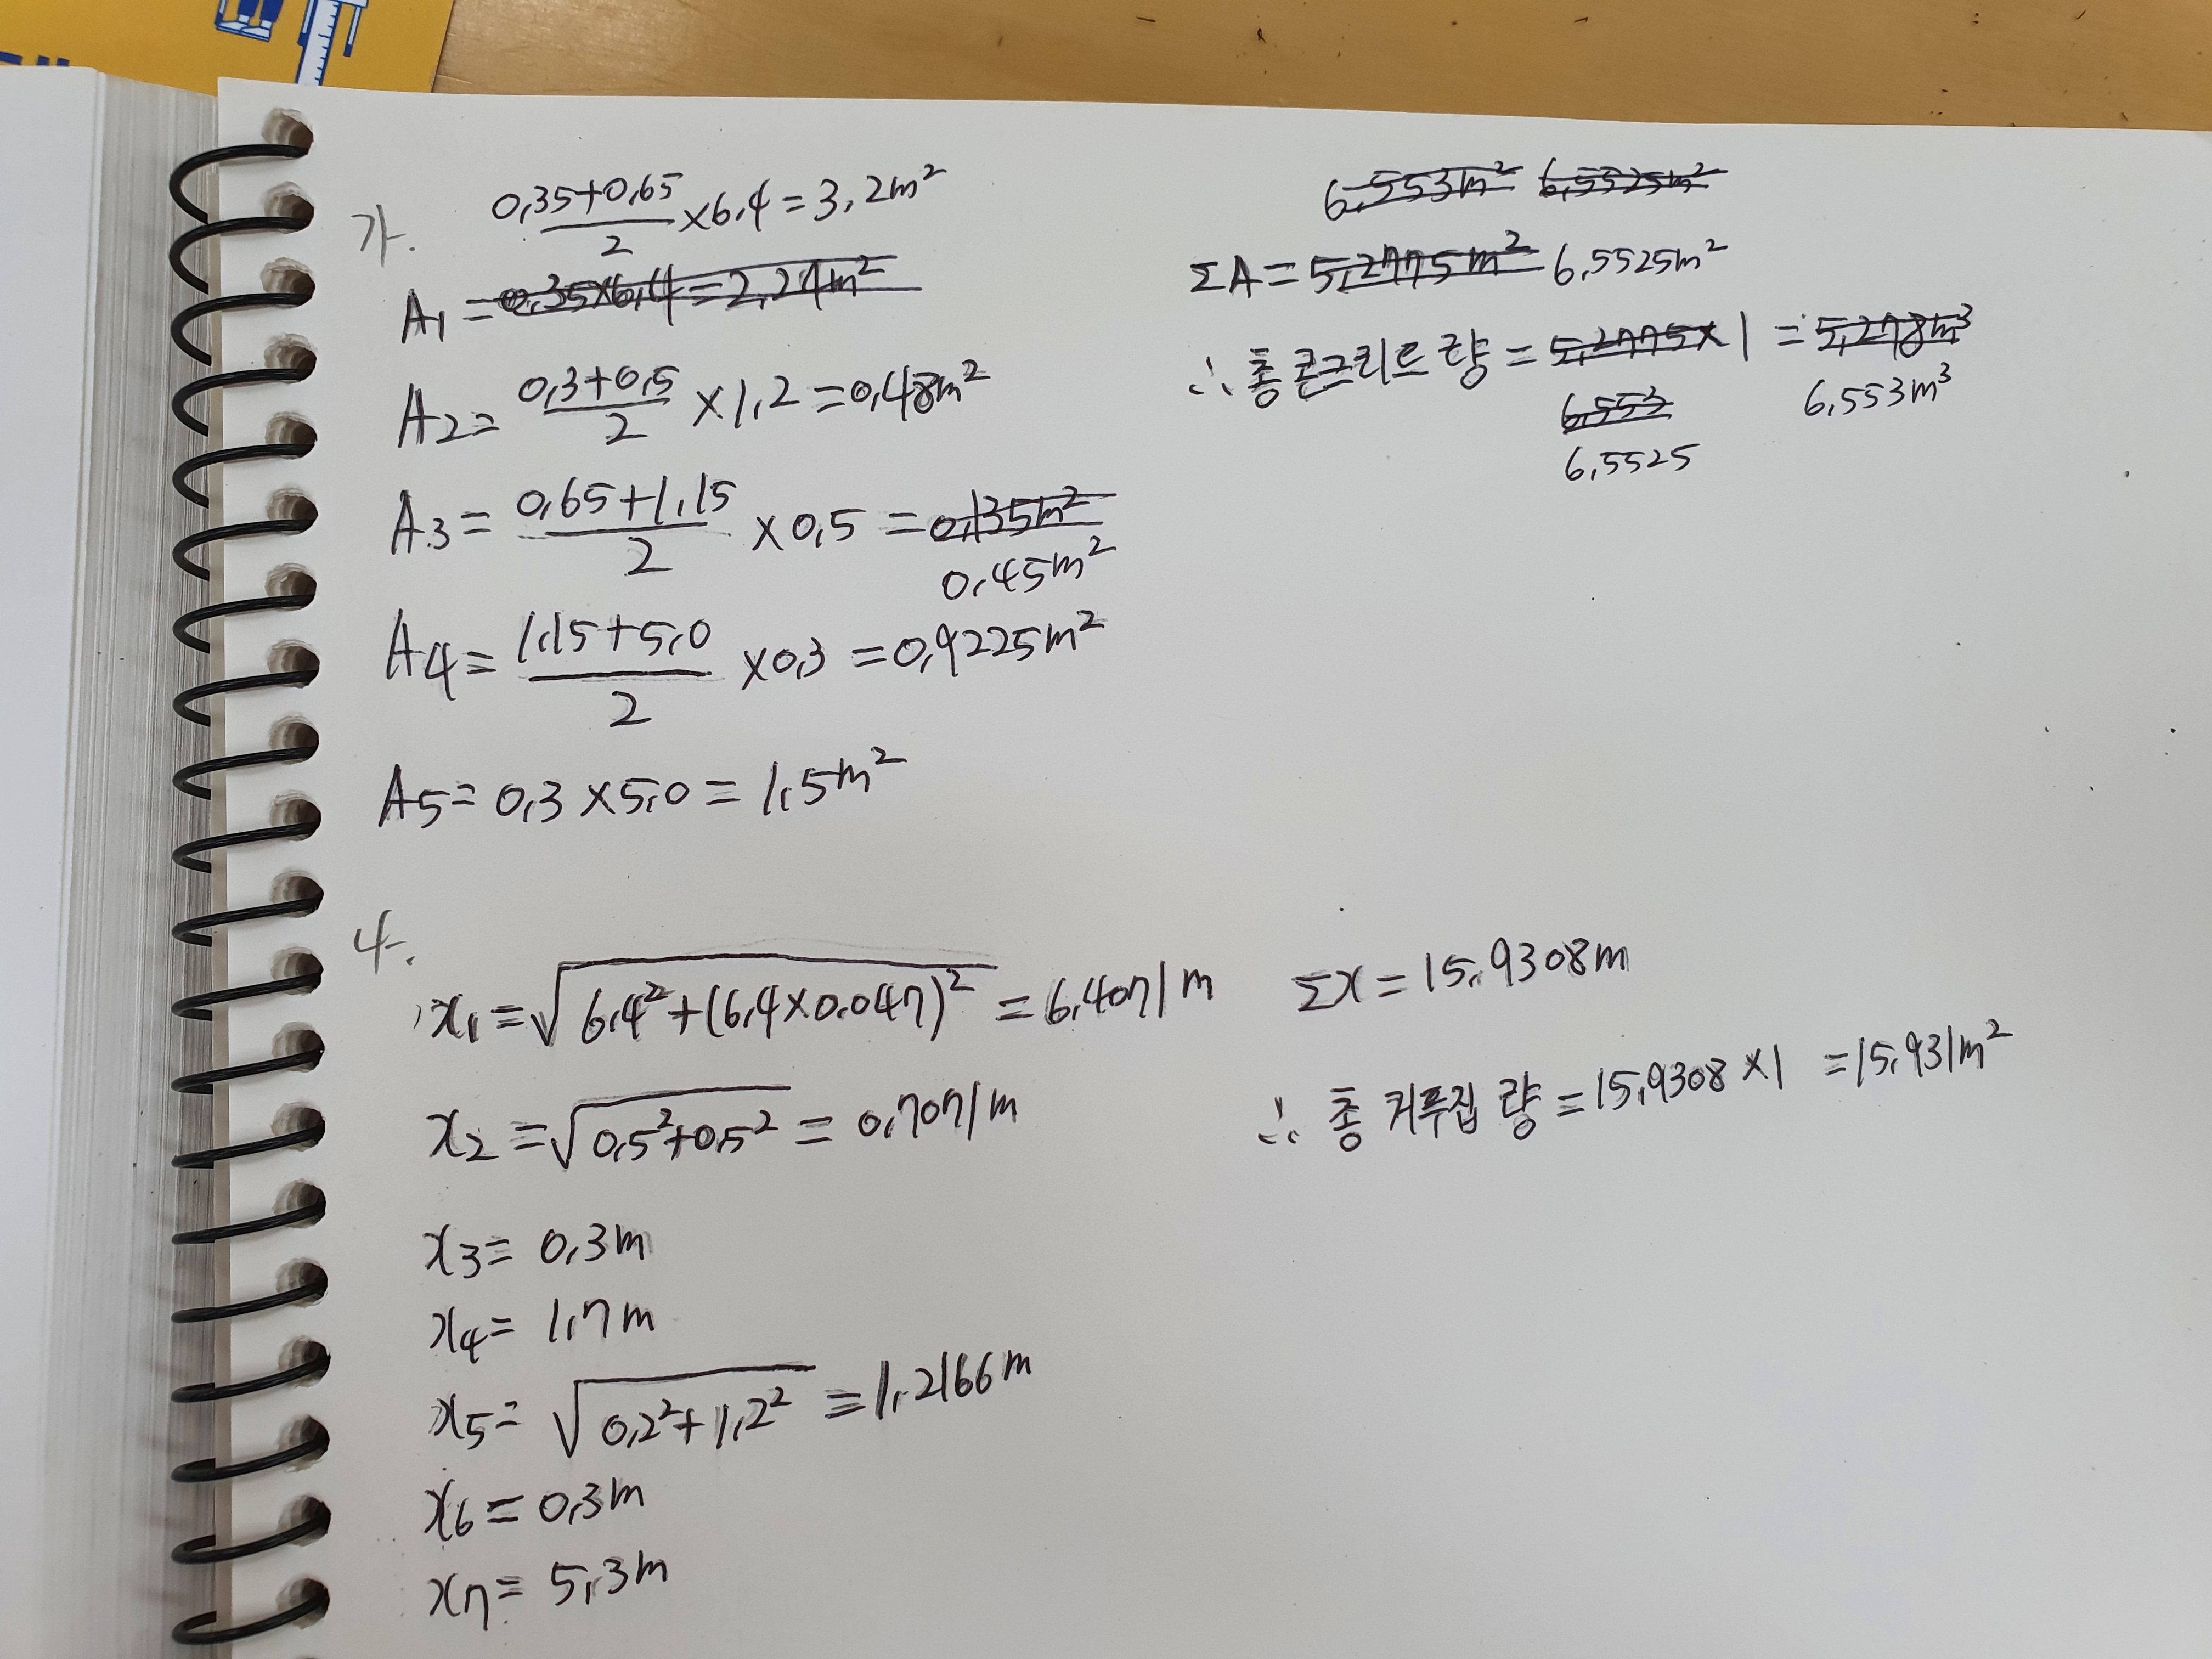 가.
0.35+0.65/2 ×6.4=3.2m²
A₁=0.35×6.4=2.24m²
A₂=0.3+0.5/2 ×1.2=0.48m²
A₃=0.65+1.15/2 ×0.5=0.135m²
0.45m²
A₄=1.15+5.0/2 ×0.3=0.9225m²
A₅=0.3×5.0=1.5m²
6.553m² 6.5525m²
ΣA=5.2775m² 6.5525m²
∴ 총콘크리트량=5.2775×1=5.278m³
6.553 6.553m³
6.5525
나.
x₁=√6.4²+(6.4×0.047)²=6.4071m
x₂=√0.5²+0.5²=0.7071m
x₃=0.3m
x₄=1.7m
x₅=√0.2²+1.2²=1.2166m
x₆=0.3m
x₇=5.3m
Σx=15.9308m
∴ 총 커푸집 량=15.9308×1=15.931m²